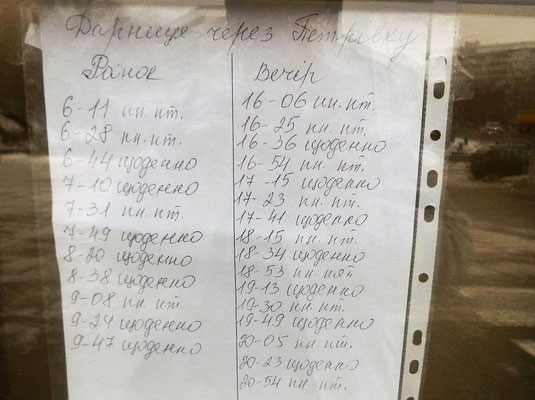 Дарниця через Петрівку
Ранок
6-11 пн. пт.
6-28 пн. пт.
6-44 щоденно
7-10 щоденно
7-31 пн. пт.
7-49 щоденно
8-20 щоденно
8-38 щоденно
9-08 пн. пт.
9-24 щоденно
9-47 щоденно
Вечір
16-06 пн. пт.
16-25 пн. пт.
16-36 щоденно
16-54 пн. пт.
17-15 щоденно
17-23 пн. пт.
17-41 щоденно
18-15 пн. пт.
18-34 щоденно
18-53 пн. пят
19-13 щоденно
19-30 пн. пт.
19-49 щоденно
20-05 пн. пт.
20-23 щоденно
20-54 пн. пт.